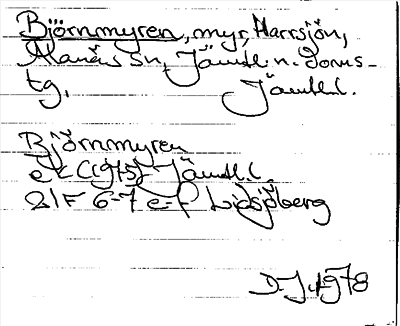 Björnmyren, myr, Harrsjön,
Alanäs sn, Jämtl. n. doms-
tg, Jämtl. l.
Björnmyren
ek C (1975) Jämtl. l.
21F 6-7 e-f Lidsjöberg
D-J 1978